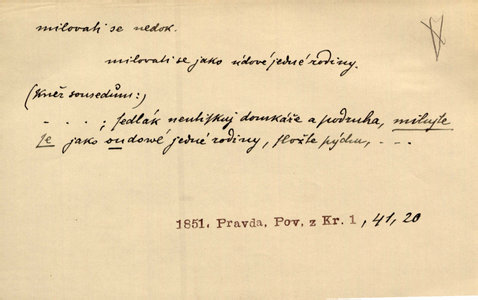 milovati se nedok.
milovati se jako údové jedné rodiny.
(Kněz sousedům:)
- - - ; sedlák neutiskuj domkáře a podruha, milujte
se jako oudowé jedné rodiny, složte pýchu, - - -
1851. Pravda, Pov. z Kr. 1, 41, 20